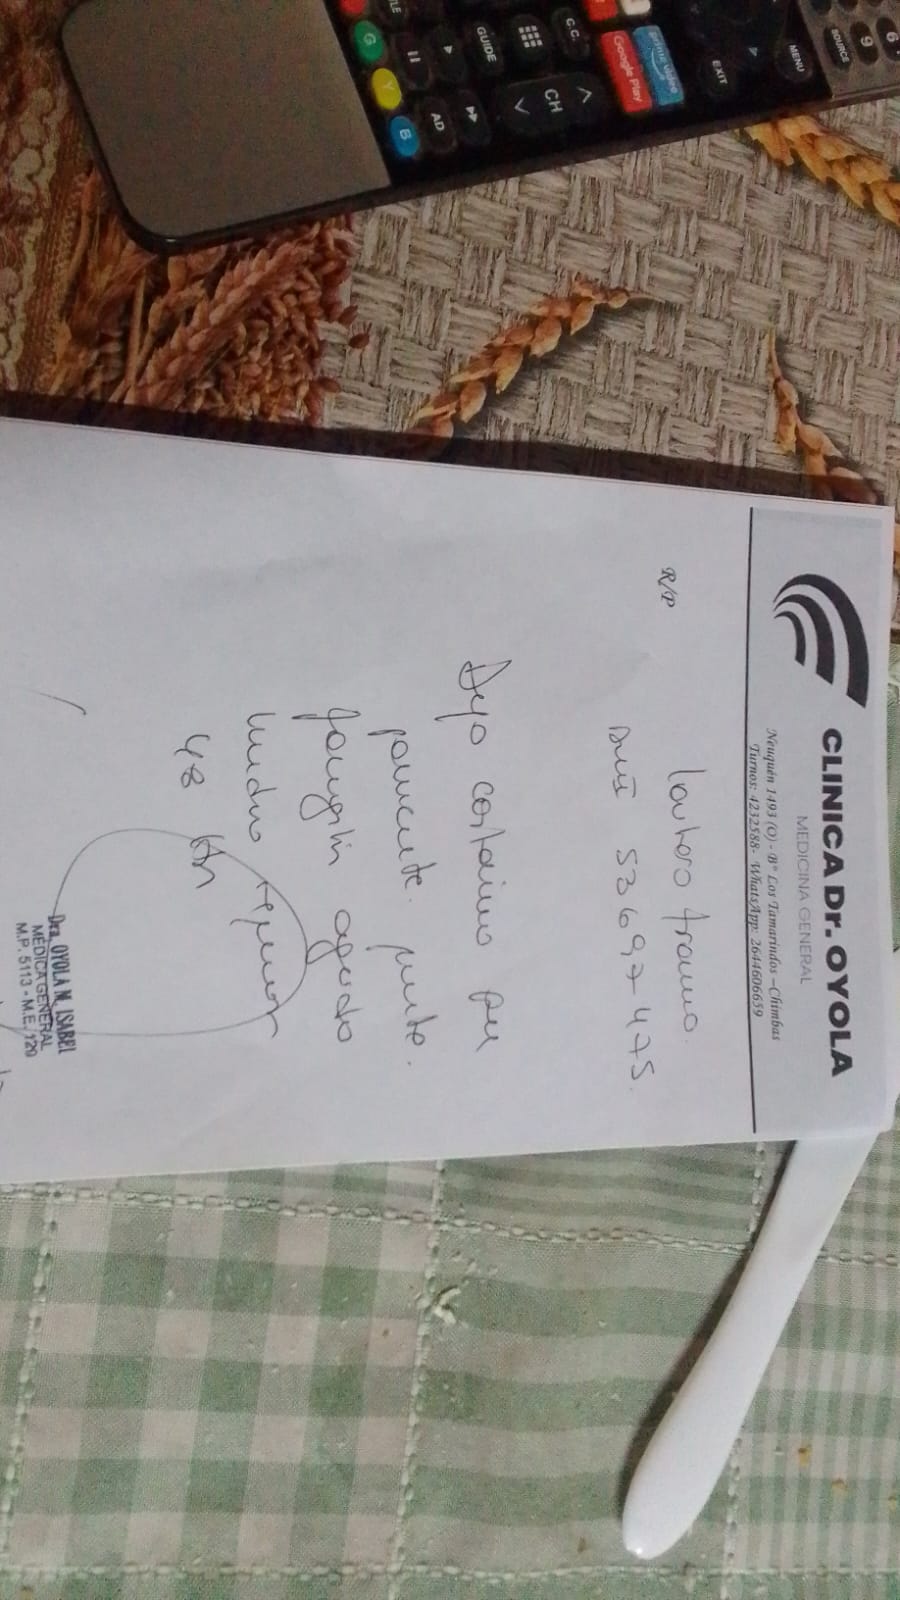 CLINICA Dr. OYOLA
MEDICINA GENERAL
Neuquén 1493 (O) - Bº Los Tamarindos - Chimbas
Turnos: 4232588- WhatsApp: 2644606659
R/P
DNI 53697475.
Dejo constancia que
paciente
faringitis aguda
indico reposo
48 Hs
Dra. OYOLA M. ISABEL
MEDICA GENERAL
M.P. 5113 - M.E. 129
GUIDE
C.C.
CH
AD
G
Y
B
Google Play
prime video
EXIT
MENU
SOURCE
9
6